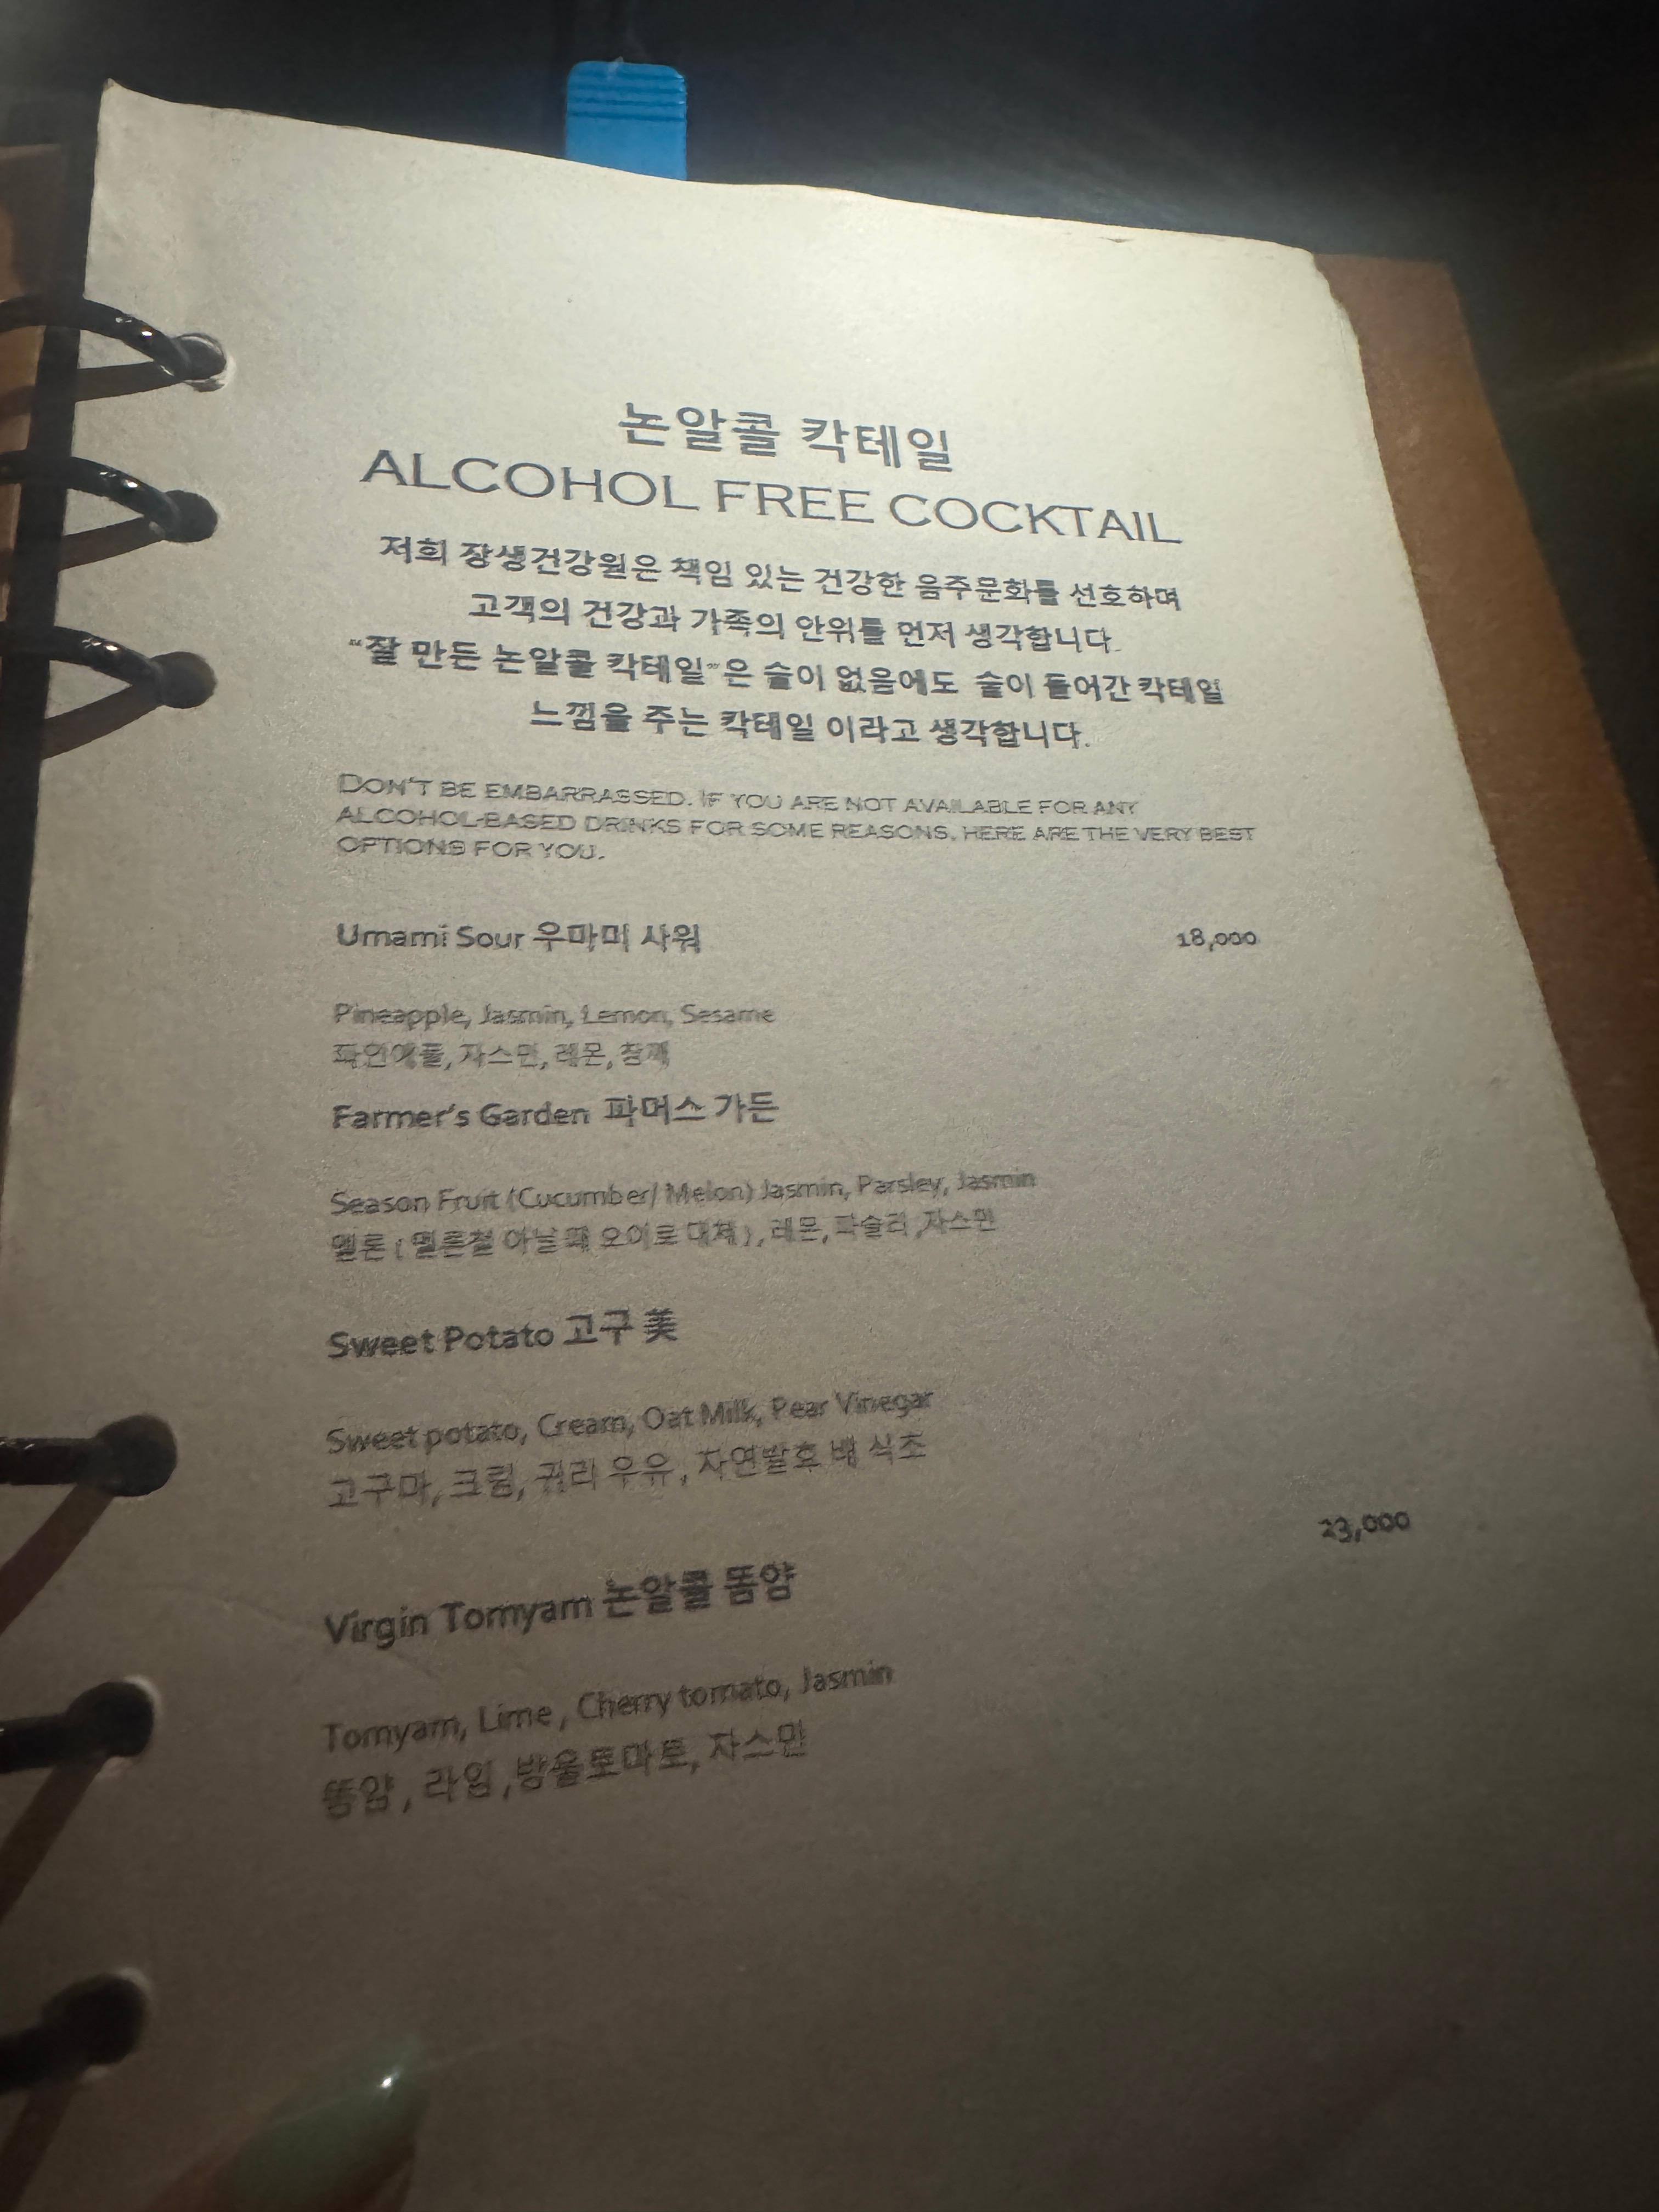 논알콜 칵테일
ALCOHOL FREE COCKTAIL
저희 장생건강원은 책임 있는 건강한 음주문화를 선호하며
고객의 건강과 가족의 안위를 먼저 생각합니다.
“잘 만든 논알콜 칵테일”은 술이 없음에도 술이 들어간 칵테일
느낌을 주는 칵테일 이라고 생각합니다.
DON'T BE EMBARRASSED. IF YOU ARE NOT AVAILABLE FOR ANY
ALCOHOL-BASED DRINKS FOR SOME REASONS, HERE ARE THE VERY BEST
OPTIONS FOR YOU.
Umami Sour 우마미 사워 18,000
Pineapple, Jasmin, Lemon, Sesame
파인애플, 자스민, 레몬, 참깨
Farmer's Garden 파머스 가든
Season Fruit (Cucumber/ Melon) Jasmin, Parsley, Jasmin
멜론 ( 멜론철 아닐 때 오이로 대체 ), 레몬, 파슬리 ,자스민
Sweet Potato 고구 美
Sweet potato, Cream, Oat Milk, Pear Vinegar
고구마, 크림, 귀리 우유 , 자연발효 배 식초
23,000
Virgin Tomyam 논알콜 똠얌
Tomyam, Lime , Cherry tomato, Jasmin
똠얌 , 라임 ,방울토마토, 자스민